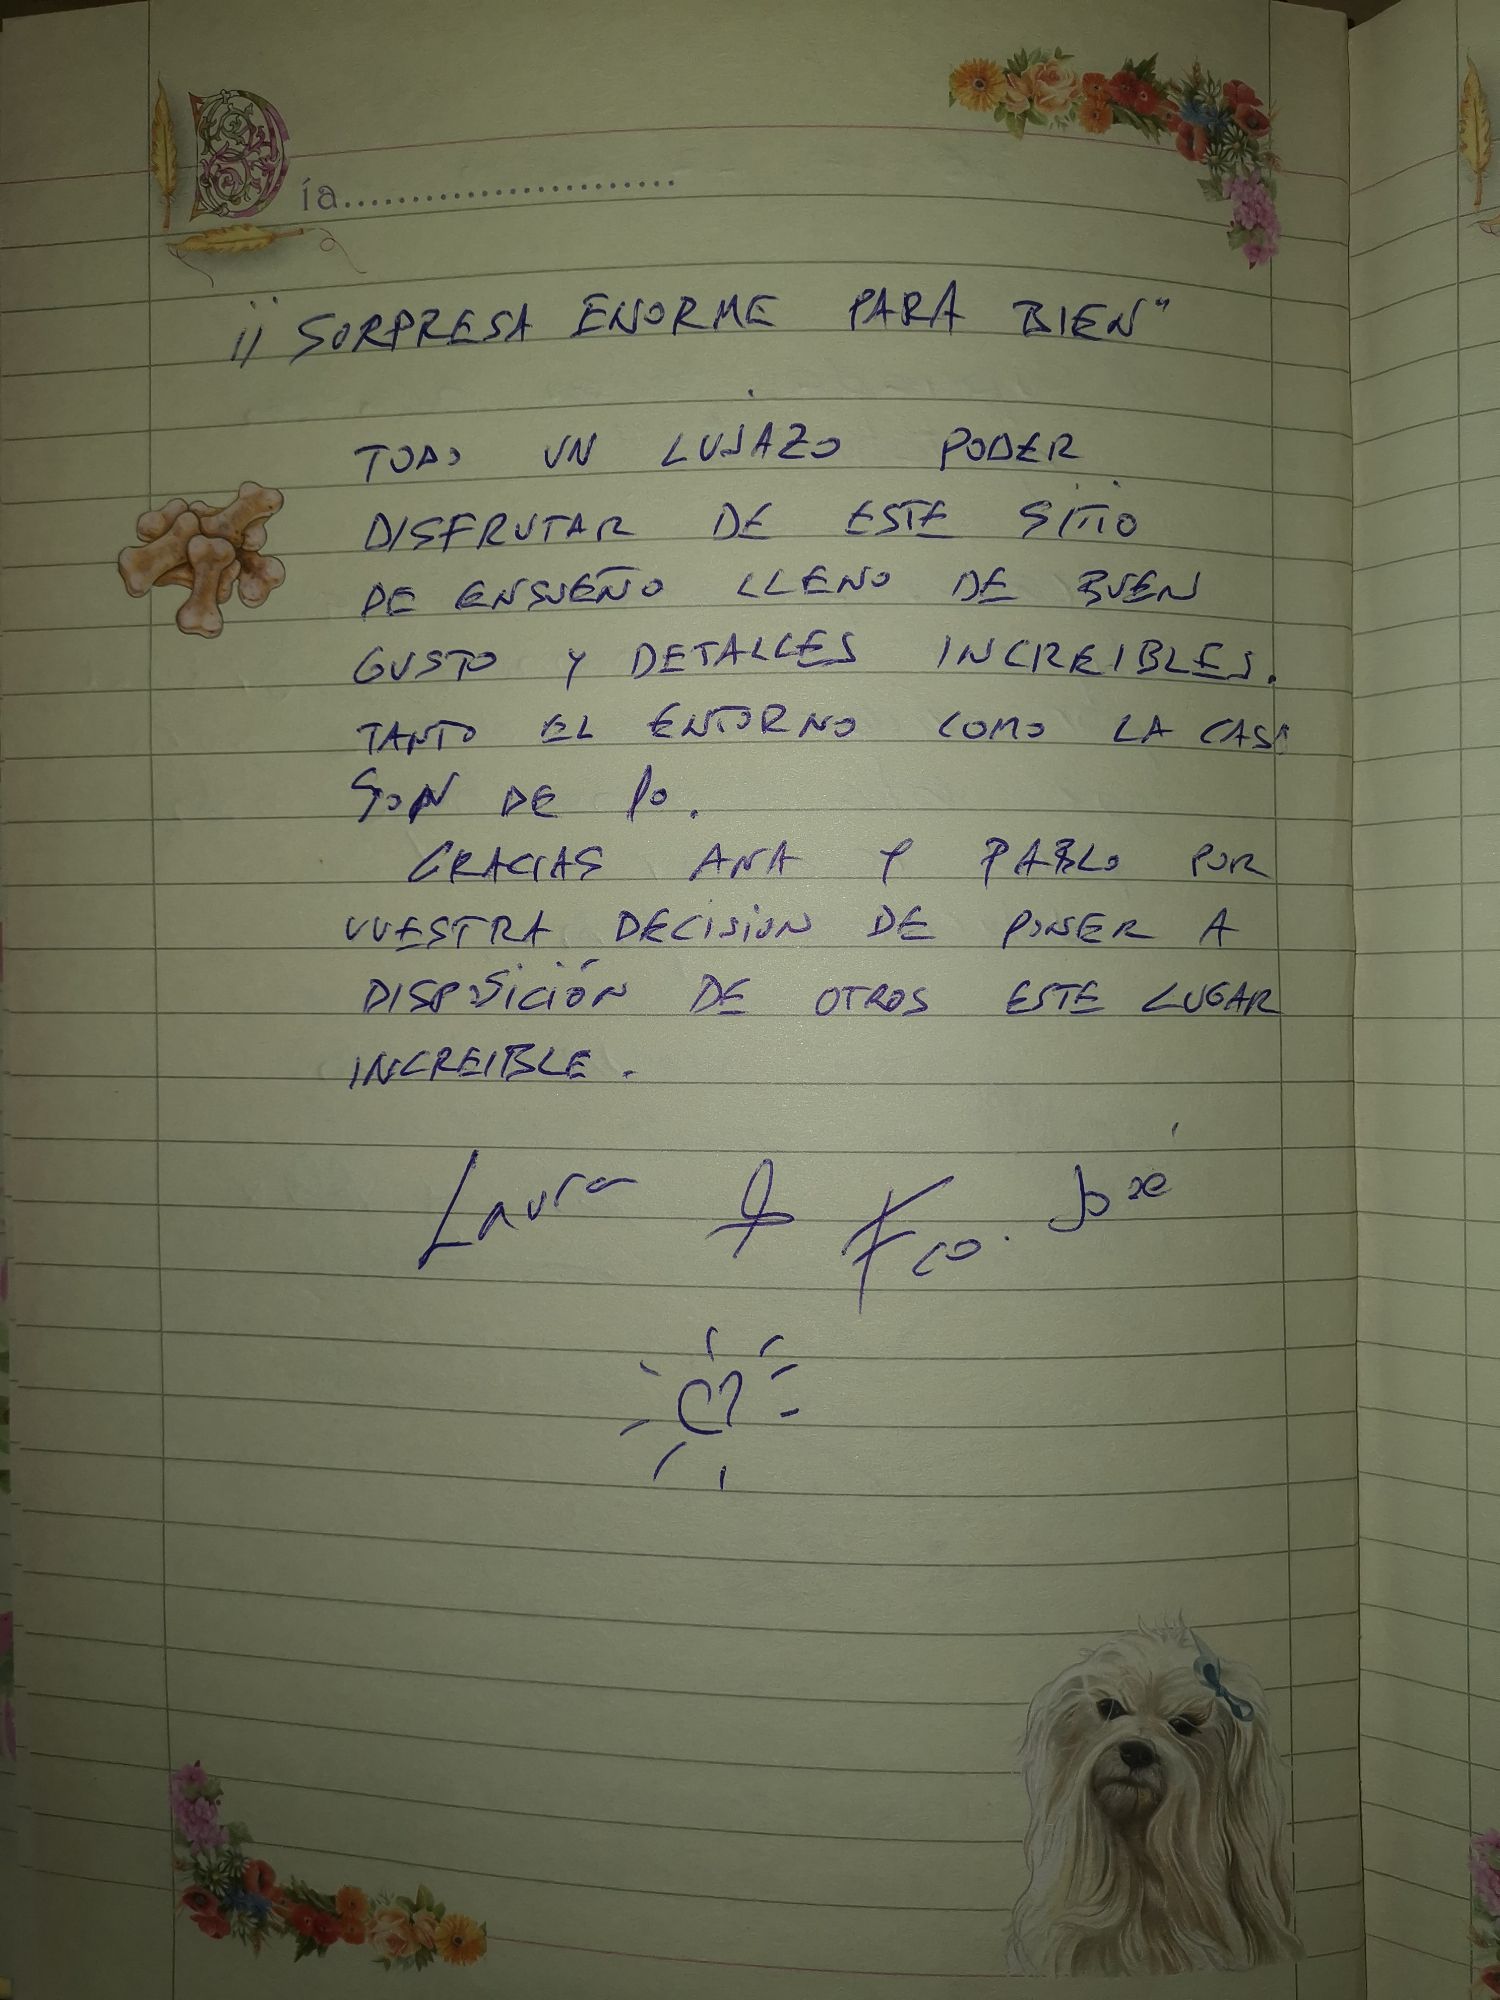 Día........................
¡¡ SORPRESA ENORME PARA BIEN"
TODO UN LUJAZO PODER
DISFRUTAR DE ESTE SITIO
DE ENSUEÑO LLENO DE BUEN
GUSTO Y DETALLES INCREIBLES.
TANTO EL ENTORNO COMO LA CASA
SON DE 10.
GRACIAS ANA Y PABLO POR
VUESTRA DECISION DE PONER A
DISPOSICIÓN DE OTROS ESTE LUGAR
INCREIBLE.
Laura & Fco. José